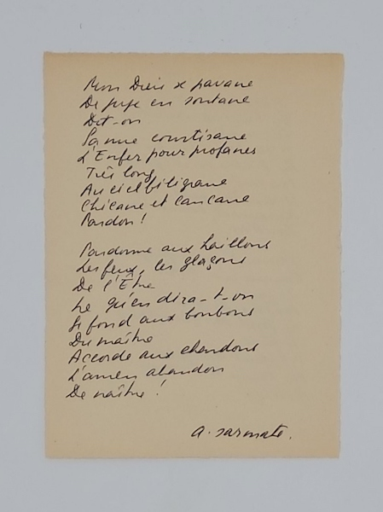 Mon Dieu se pavane
De jupe en soutane
Dit-on
Sa nue courtisane
L'Enfer pour profanes
Très long
Au ciel filigrane
Chicane et cancane
Pardon !
Pardonne aux haillons
Les feux, les glaçons
De l'Être
Le qu'en dira-t-on
Se fond aux bonbons
Du maître
Accorde aux chardons
L'amen abandon
De naître !
A. Sarmate.